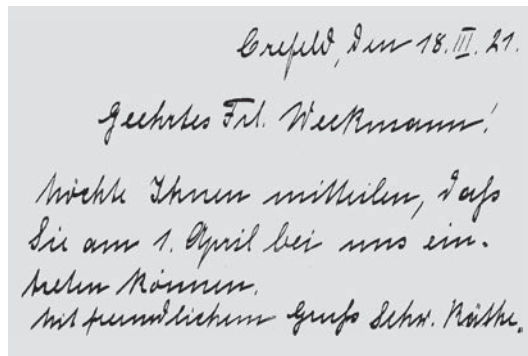 Crefeld, den 18. III. 21.
Geehrtes Frl. Weckmann!
Möchte Ihnen mitteilen, daß
Sie am 1. April bei uns ein-
treten können.
Mit freundlichem Gruß Schw. Käthe.